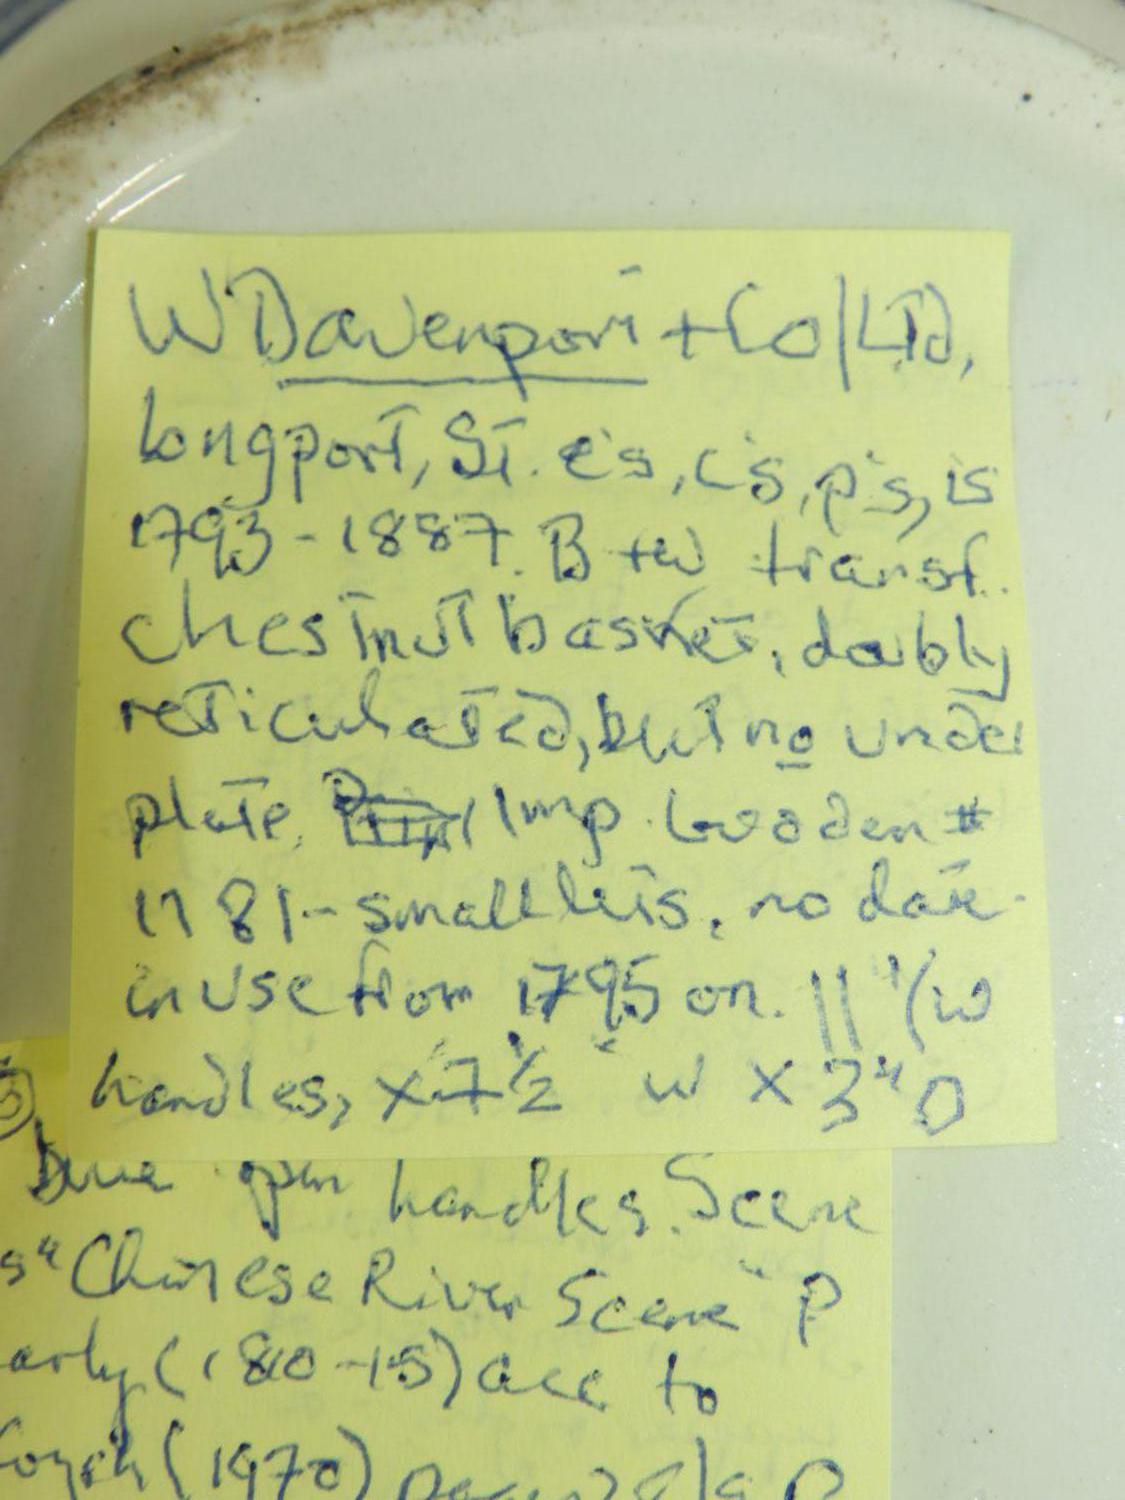 W Davenport + Co/LTD,
Longport, ST. e's, c's, p's, is
1793-1887. B + W transf.
chestnut basket, doubly
reticulated, but no under
plate. Imp. Godden #
1181- small letts, no date-
in use from 1795 on. 11"/w
handles, x 7 1/2" W x 3" D
Blue open handles. Scene
s "Chinese River Scene" P
arly (1810-15) acc to
(1970)